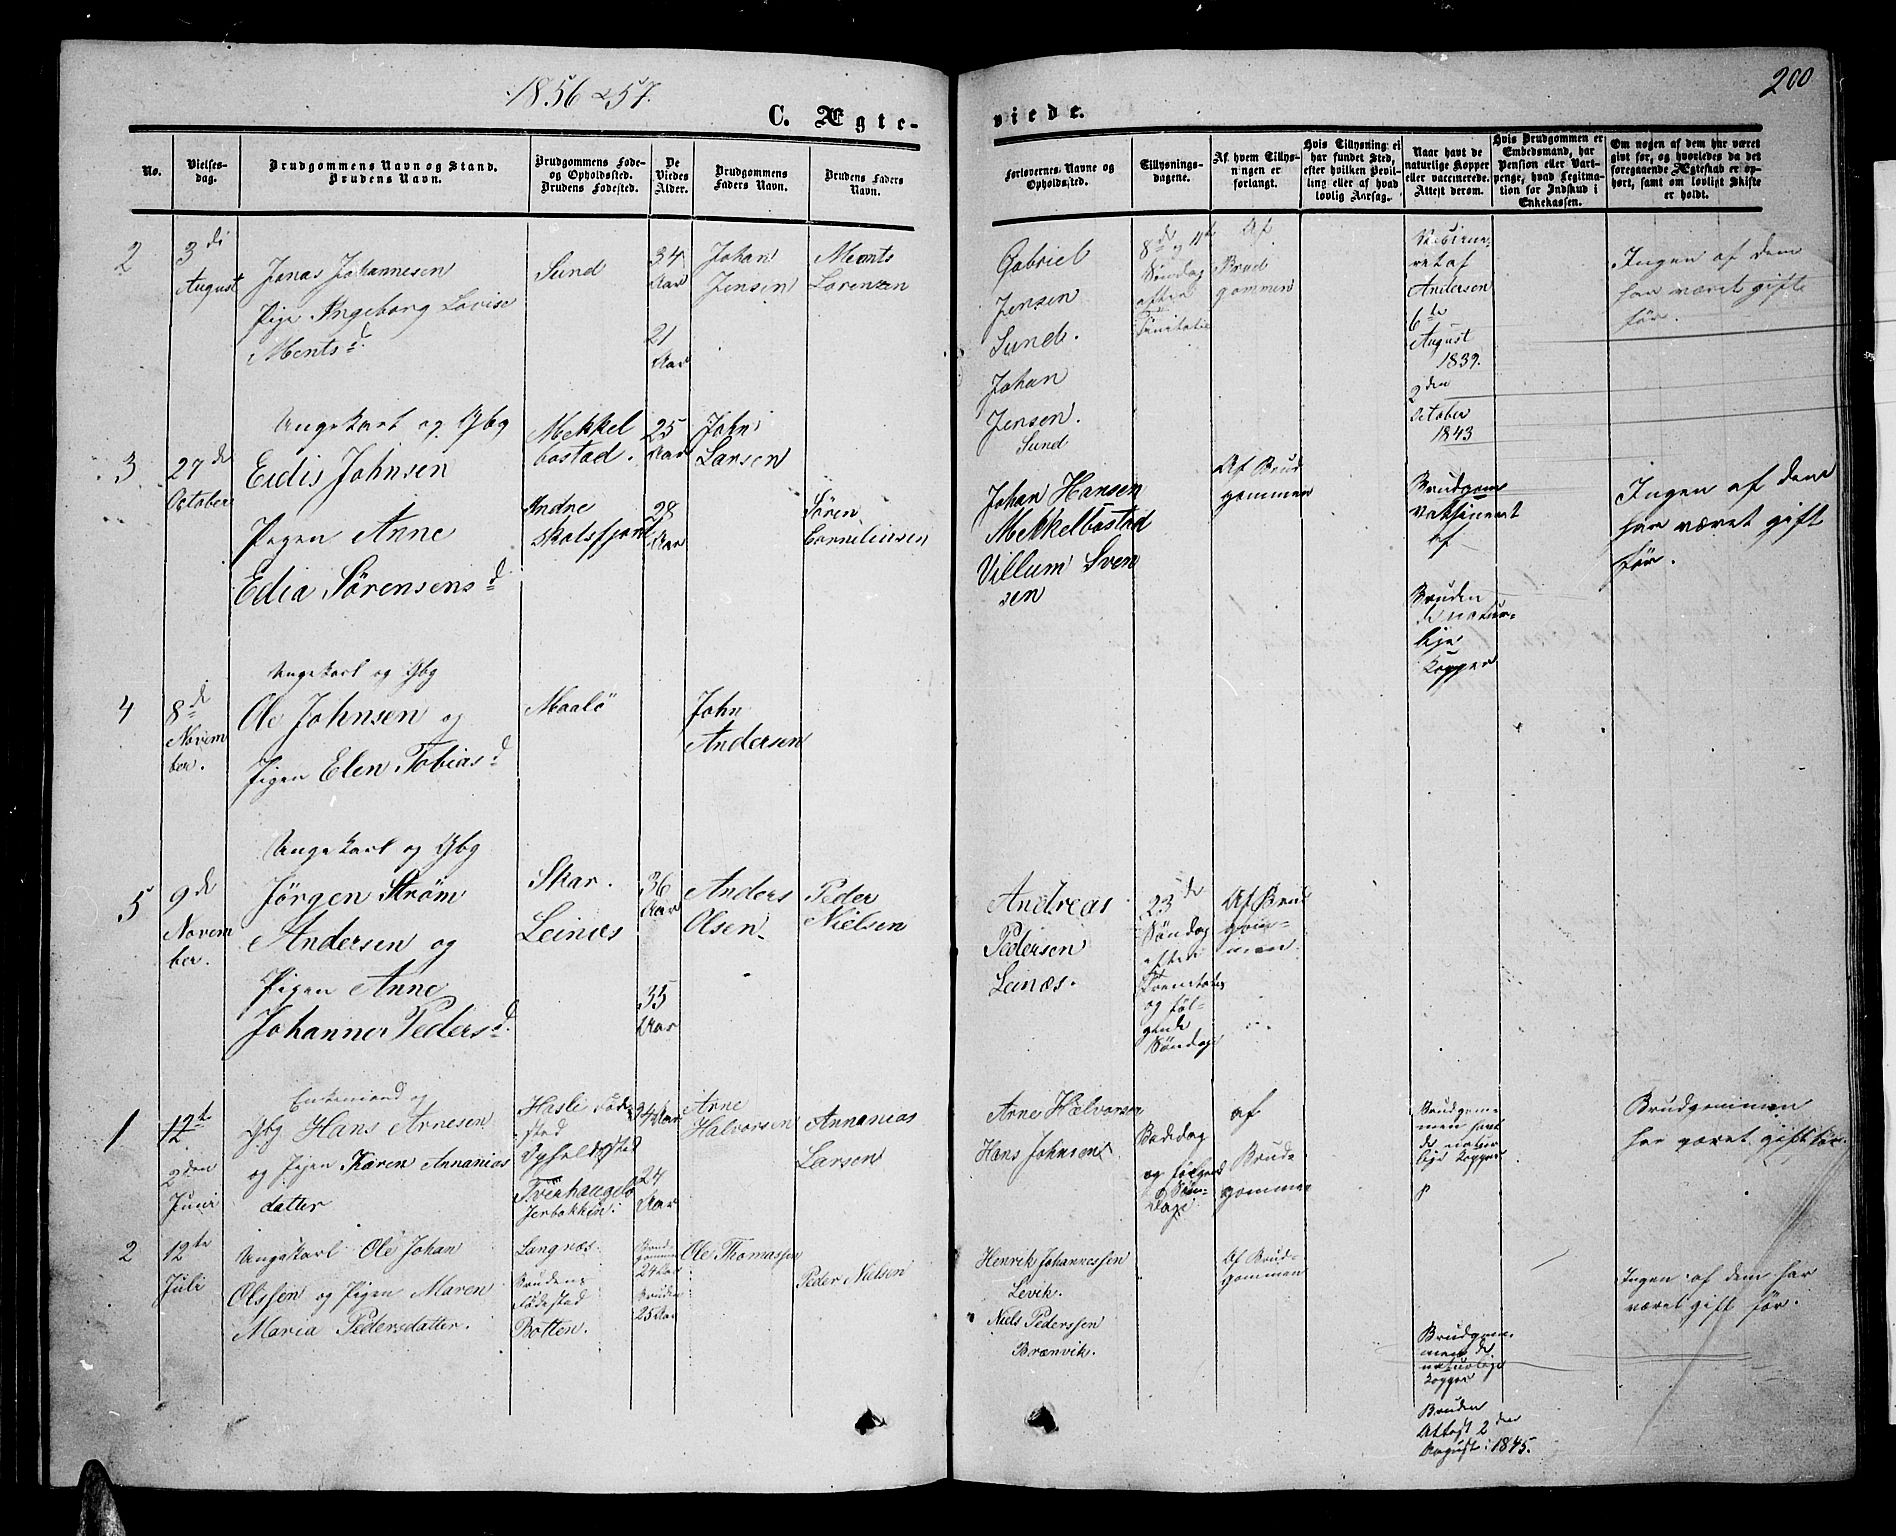 1856 & 57.
200
C. Ægte-
viede.
No.
Vielses-
dag.
Brudgommens Navn og Stand.
Brudens Navn.
Brudgommens Føde-
og Opholdssted.
Brudens Fødested.
De
Viedes
Alder.
Brudgommens
Faders Navn.
Brudens Faders
Navn.
Forlovernes Navne og
Opholdssted.
Tillysnings-
dagene.
Af hvem Tillys-
ningen er
forlangt.
Hvis Tillysning ei
har fundet Sted,
efter hvilken Bevil-
ling eller af hvad
lovlig Aarsag.
Naar havt de
naturlige Kopper
eller vaccinerede.
Attest derom.
Hvis Brudgommen er
Embedsmand, har
Pension eller Vart-
penge, hvad Legitima-
tion for Indskud i
Enkekassen.
Om nogen af dem har været
gift før, og hvorledes da det
foregaaende Ægteskab er op-
hørt, samt om lovligt Skifte
er holdt.
2
3di
August
Jonas Johannesen
Pige Ingeborg Lovise
Mentsd.
Sund
34
Aar
21
Aar
Johan
Jensen
Ments
Lorenzen
Gabriel
Jensen
Sund.
Johan
Jensen.
Sund
8de og 11te
Søndag
efter
Trinitatis
Af
Brud
gommen
ret af
Andersen
6te
August
1839.
2den
October
1843
Ingen af dem
har været gifte
før.
3
27de
October
Ungekarl og Gbg
Eidis Johnsen
Pigen Anne
Edia Sørensensd
Mekkel
bostad.
Indre
Skatsfjord
25
Aar
28
Aar
John
Larsen
Søren
Corneliusen
Johan Hansen
Mekkelbostad
Villum Sven
sen
Af Brud
gommen
Brudgom
Vaksineret
af
Bruden
de natur-
lige
Kopper
Ingen af dem
har været gift
før.
4
8de
Novem
ber.
Ungekarl og Gbg
Ole Johnsen og
Pigen Elen Tobiasd
Maalø
John
Andersen
5
9de
Novem
ber.
Ungekarl og Gbg
Jørgen Strøm
Andersen og
Pigen Anne
Johanne Pedersd.
Skar.
Leinæs
36
Aar
35
Aar
Anders
Olsen
Peder
Nielsen
Andreas
Pedersen
Leinæs.
23de
Søndag
efter
og føl-
gende
Søndage
Af Brud
gom-
men.
1
12te
2den
Juni
Enkemand og
Gbg Hans Arnesen
og Pigen Karen Annanias
datter
34 Aar
24
Aar
Arne
Halvorsen
Annanias
Larsen
Arne Halvorsen
Hans Johnsen
Bededag
og følgend
Søn-
dage
af
Brud
gommen
Brudgom-
men havt
de natur
lige Kopper
Brudgommen
har været gift før.
2
12te
Juli
Ungekarl Ole Johan
Olssen og Pigen Maren
Maria Pedersdatter.
Langnæs.
Brudens
Fødestad
Botten.
Brud-
gommen
24 Aar
Bruden
25 Aar
Ole Thomassen
Peder Nielsen
Henrik Johannessen
Levik.
Niels Pederssen
Brænvik.
Af Brud-
gommen
Brudgom-
men de
naturlige
Kopper
Bruden
Attest 2den
August 1845.
Ingen af dem har
været gift før.